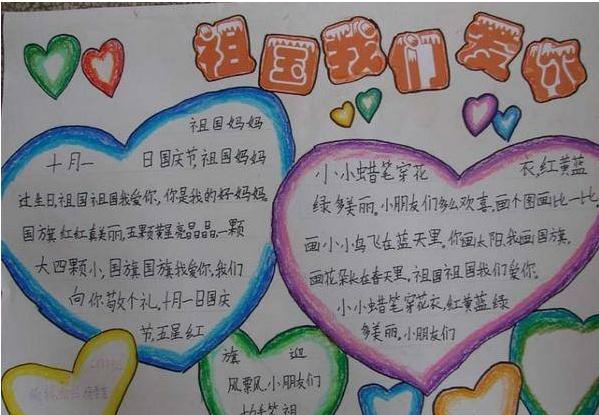 祖国我们爱你
祖国妈妈
十月一 日国庆节,祖国妈妈
过生日,祖国祖国我爱你,你是我的好妈妈
国旗红红真美丽,五颗黄星亮晶晶,一颗
大四颗小,国旗国旗我爱你,我们
向你敬个礼,十月一日国庆
节,五星红
旗 迎
风飘,小朋友们
小小蜡笔穿花 衣,红黄蓝
绿多美丽,小朋友们多么欢喜,画个图画比一比,
画小小鸟飞在蓝天里,你画太阳,我画国旗,
画花朵长在春天里,祖国祖国我们爱你。
小小蜡笔穿花衣,红黄蓝绿
多美丽,小朋友们